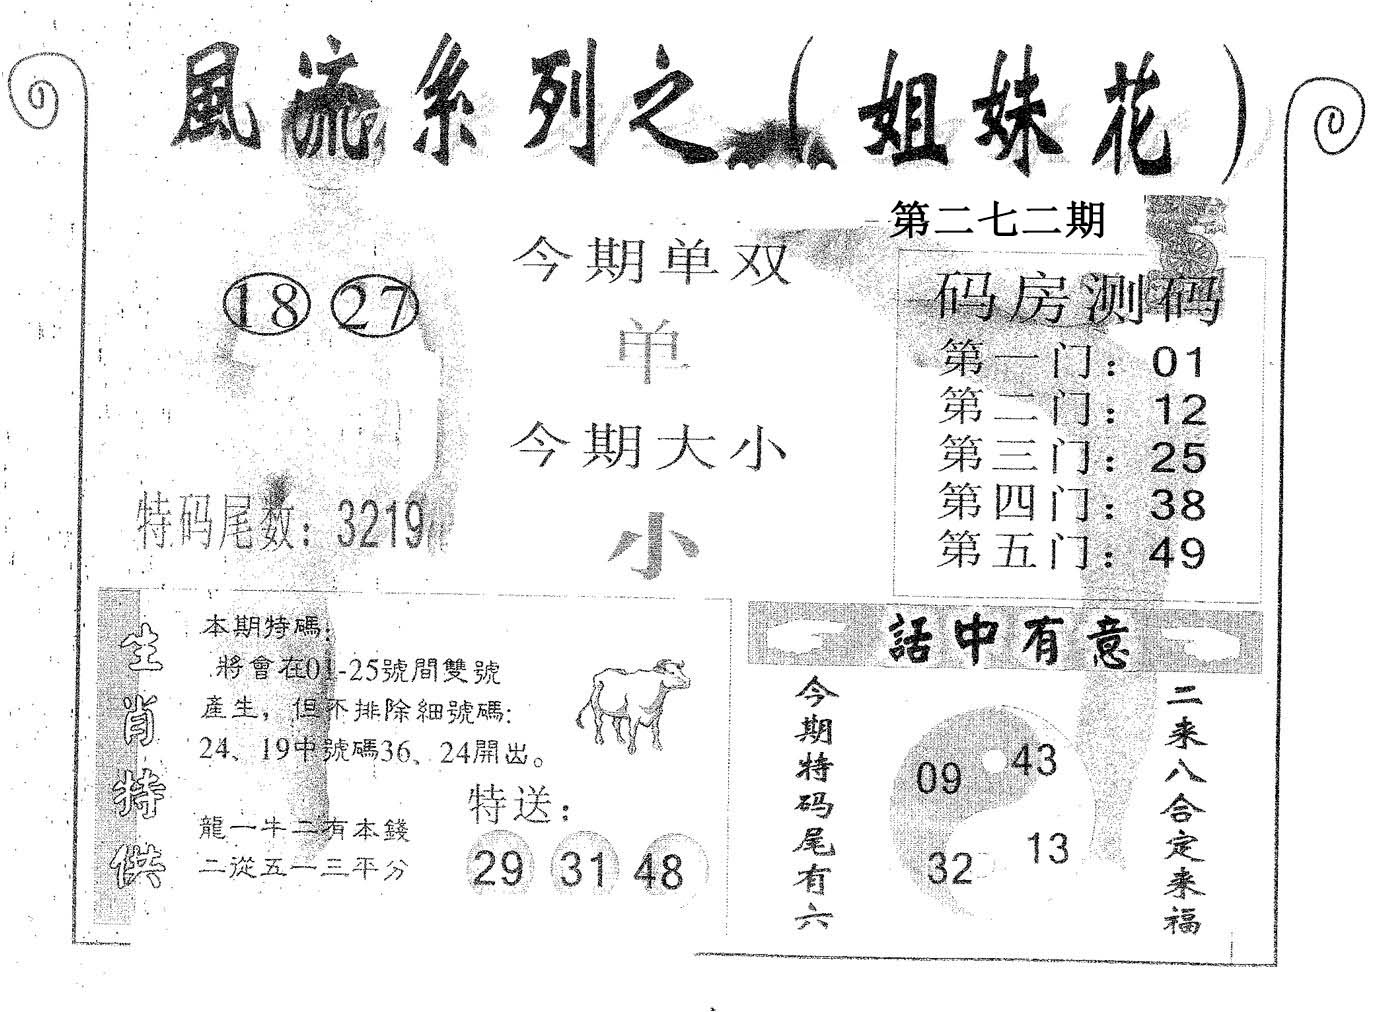 風流系列之（姐妹花）
第二七二期
18 27
今期单双
单
今期大小
小
特码尾数：3219
码房测码
第一门：01
第二门：12
第三门：25
第四门：38
第五门：49
生肖特供
本期特碼：
將會在01-25號間雙號
產生，但不排除細號碼：
24、19中號碼36、24開出。
龍一牛二有本錢
二從五一三平分
特送：
29 31 48
話中有意
今期特码尾有六
09 43
32 13
二来八合定来福